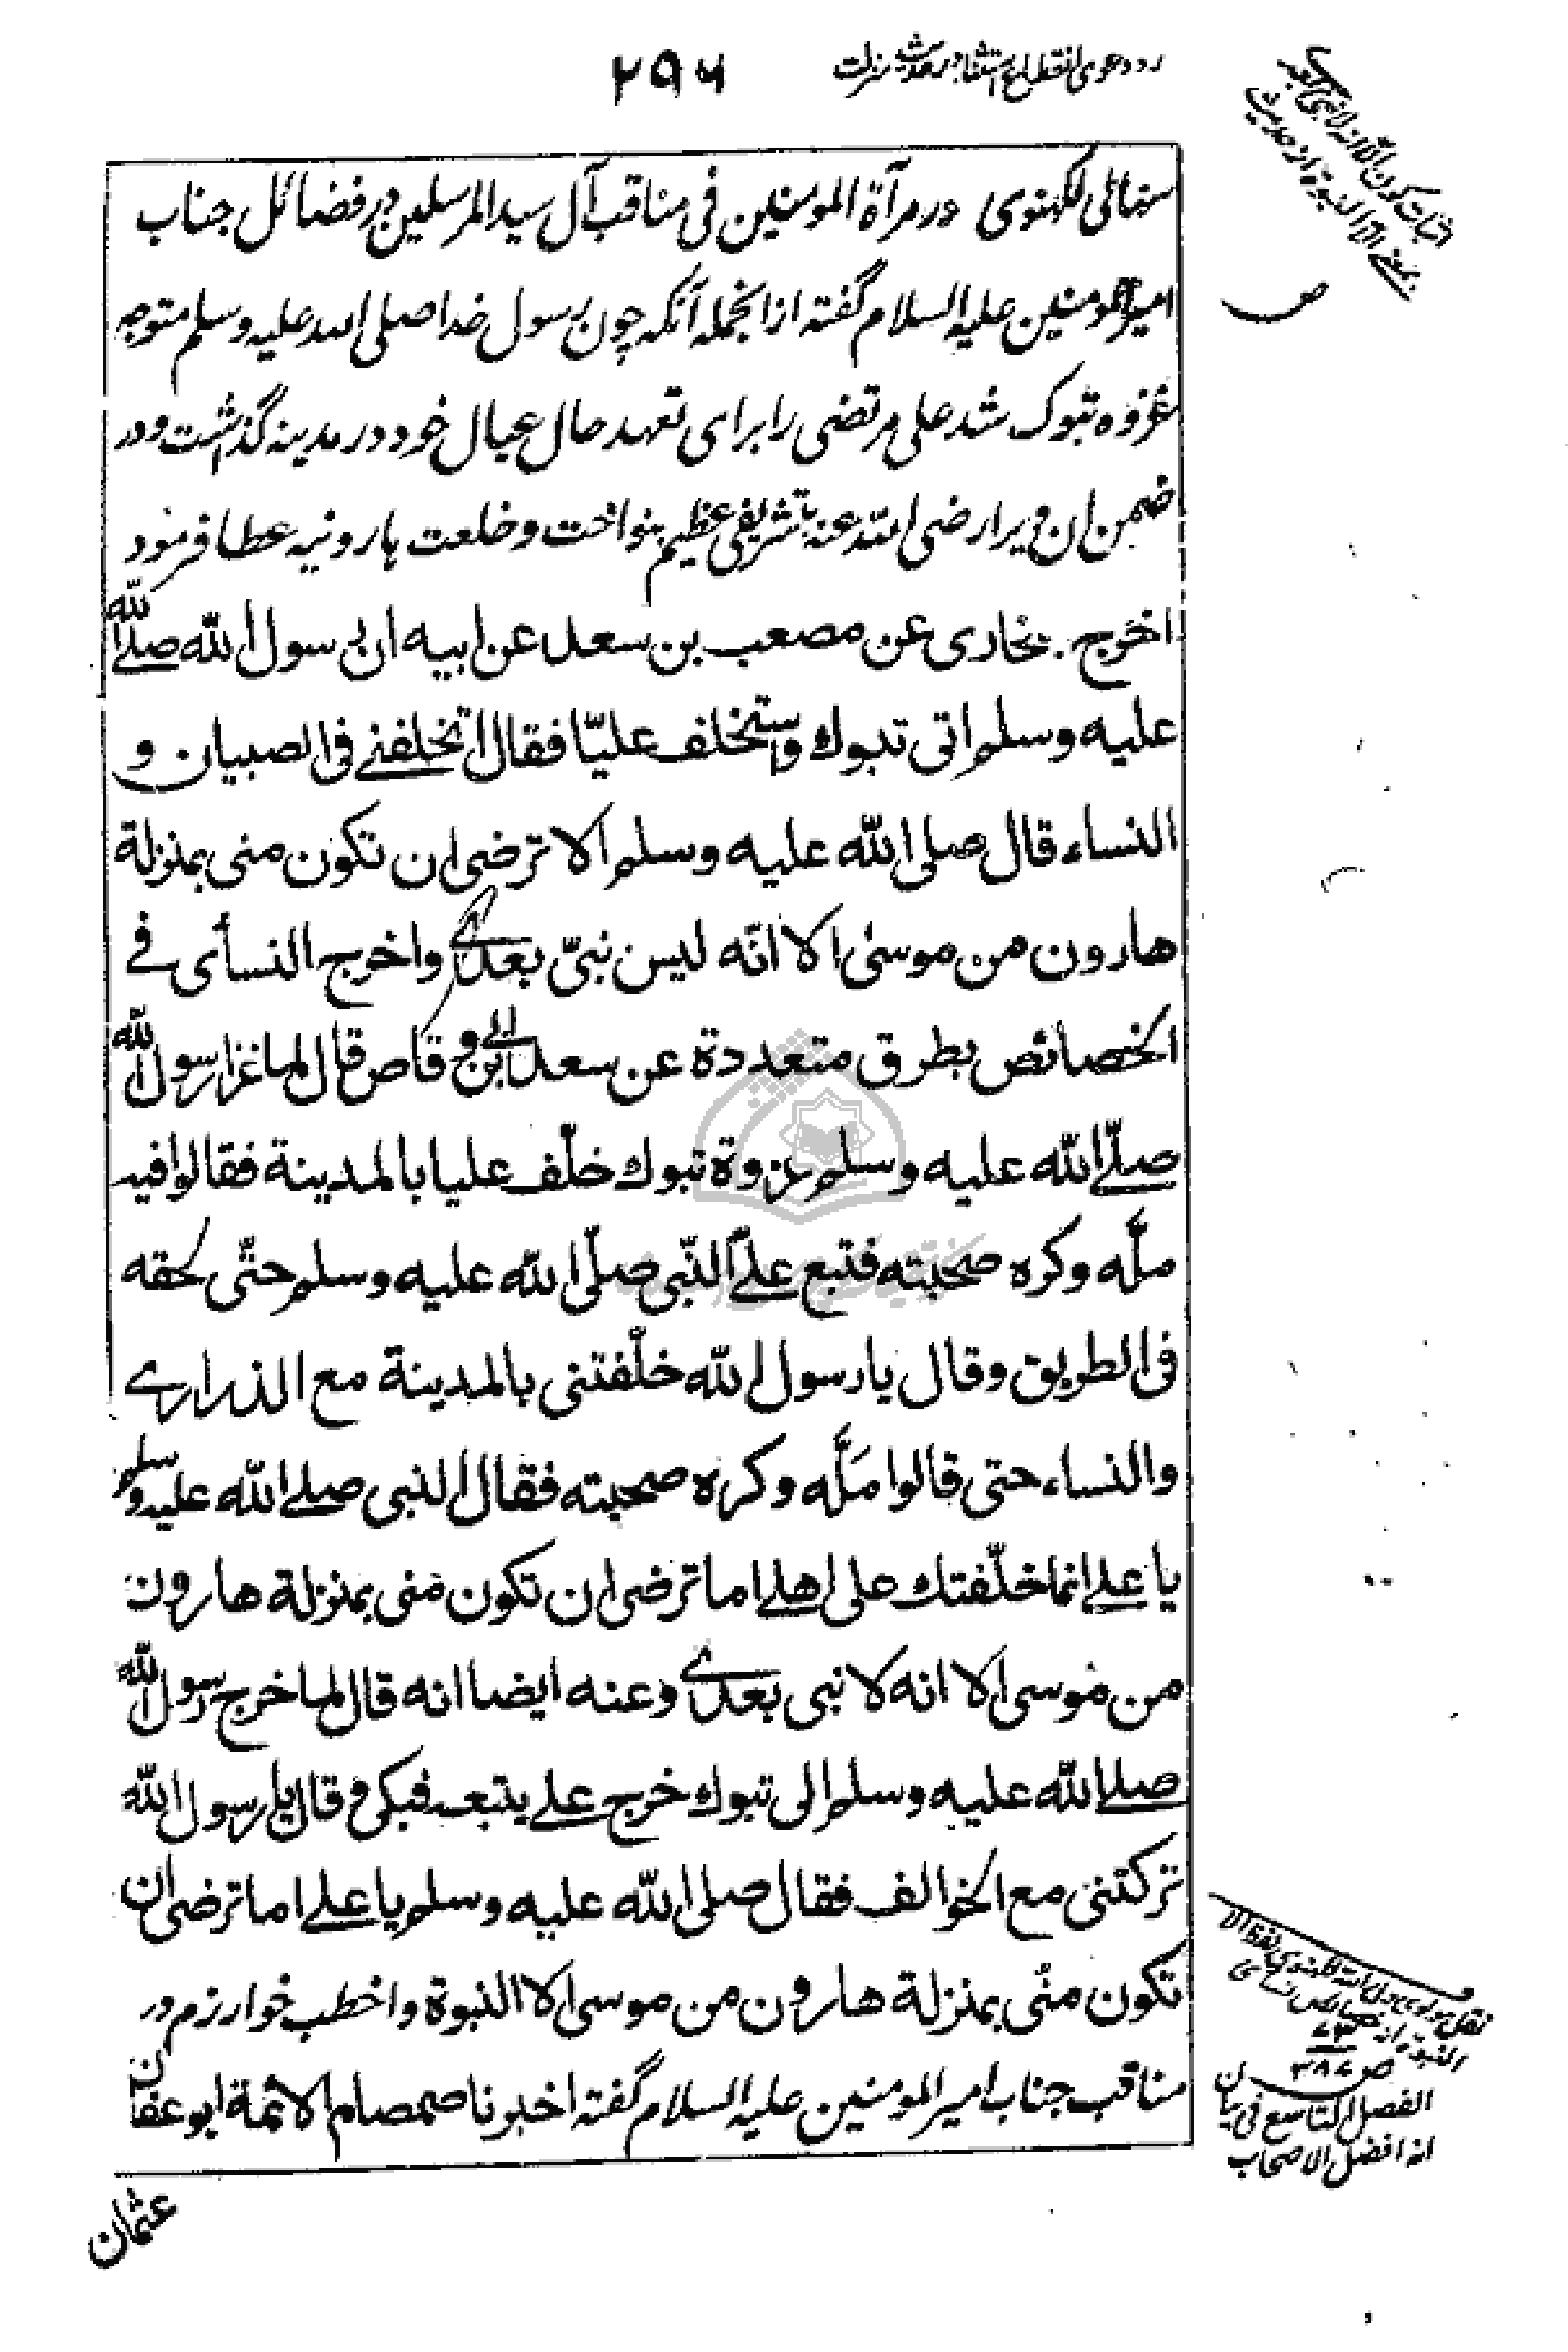 رد دعوی انقطاع استثنا در حدیث منزلت
۲۹۶
اثبات کون الا انه لا نبی بعدی
بمعنی الا النبوة از حدیث
ص
سهالی لکهنوی در مرآة المومنین فی مناقب آل سید المرسلین در فضائل جناب
امیر المومنین علیه السلام گفته ازانجمله آنکه چون رسول خدا صلی الله علیه وسلم متوجه
غزوه تبوک شد علی مرتضی را برای تعهد حال عیال خود در مدینه گذاشت و در
ضمن ان ویرا رضی الله عنه بتشریفی عظیم بنواخت و خلعت هارونیه عطا فرمود
اخرج بخاری عن مصعب بن سعد عن ابیه ان رسول الله صلی الله
علیه وسلم اتی تبوك واستخلف علیّا فقال اتخلفنی فی الصبیان و
النساء قال صلی الله علیه وسلم الا ترضی ان تکون منی بمنزلة
هارون من موسیٰ الا انّه لیس نبیّ بعدی واخرج النسأی فی
الخصائص بطرق متعددة عن سعد بن ابی وقاص قال لما غزا رسول الله
صلّی الله علیه وسلم غزوة تبوك خلّف علیا بالمدینة فقالوا فیه
ملّه وکره صحبته فتبع علیّ النّبی صلّی الله علیه وسلم حتّی لحقه
فی الطریق وقال یا رسول الله خلّفتنی بالمدینة مع الذراری
والنساء حتی قالوا مَلَّه وکره صحبته فقال النبی صلی الله علیه وسلم
یا علی انما خلّفتك علی اهلی اما ترضی ان تکون منی بمنزلة هارون
من موسی الا انه لا نبی بعدی وعنه ایضا انه قال لما خرج رسول الله
صلی الله علیه وسلم الی تبوك خرج علی یتبعه فبکی وقال یا رسول الله
ترکتنی مع الخوالف فقال صلی الله علیه وسلم یا علی اما ترضی ان
تکون منّی بمنزلة هارون من موسی الا النبوة واخطب خوارزم در
مناقب جناب امیر المومنین علیه السلام گفته اخبرنا صمصام الائمة ابو عفان
عثمان
نقل مولوی ولی الله لکهنوی لفظ الا
النبوة از خصائص نسائی
ص ۳۸۷
الفصل التاسع فی بیان
انه افضل الاصحاب